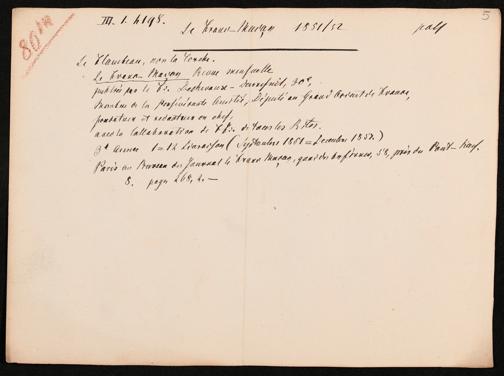 5
80 M
III. 1. h 198. Le Franc-Maçon 1851/52
Le Flambeau, non la Torche.
Le Franc-Maçon Revue mensuelle
publiée par le F∴ Dechevaux-Dumesnil, 30e,
Membre de la Persévérante Amitié, Député au Grand Orient de France,
fondateur et rédacteur en chef,
avec la Collaboration de FF∴ de tous les Rites.
3e Année 1=12 Livraison (Septembre 1851=Décembre 1852.)
Paris au Bureau du Journal le Franc-Maçon, quai des Orfèvres, 58, près du Pont-Neuf.
8. pages 268, 2.—